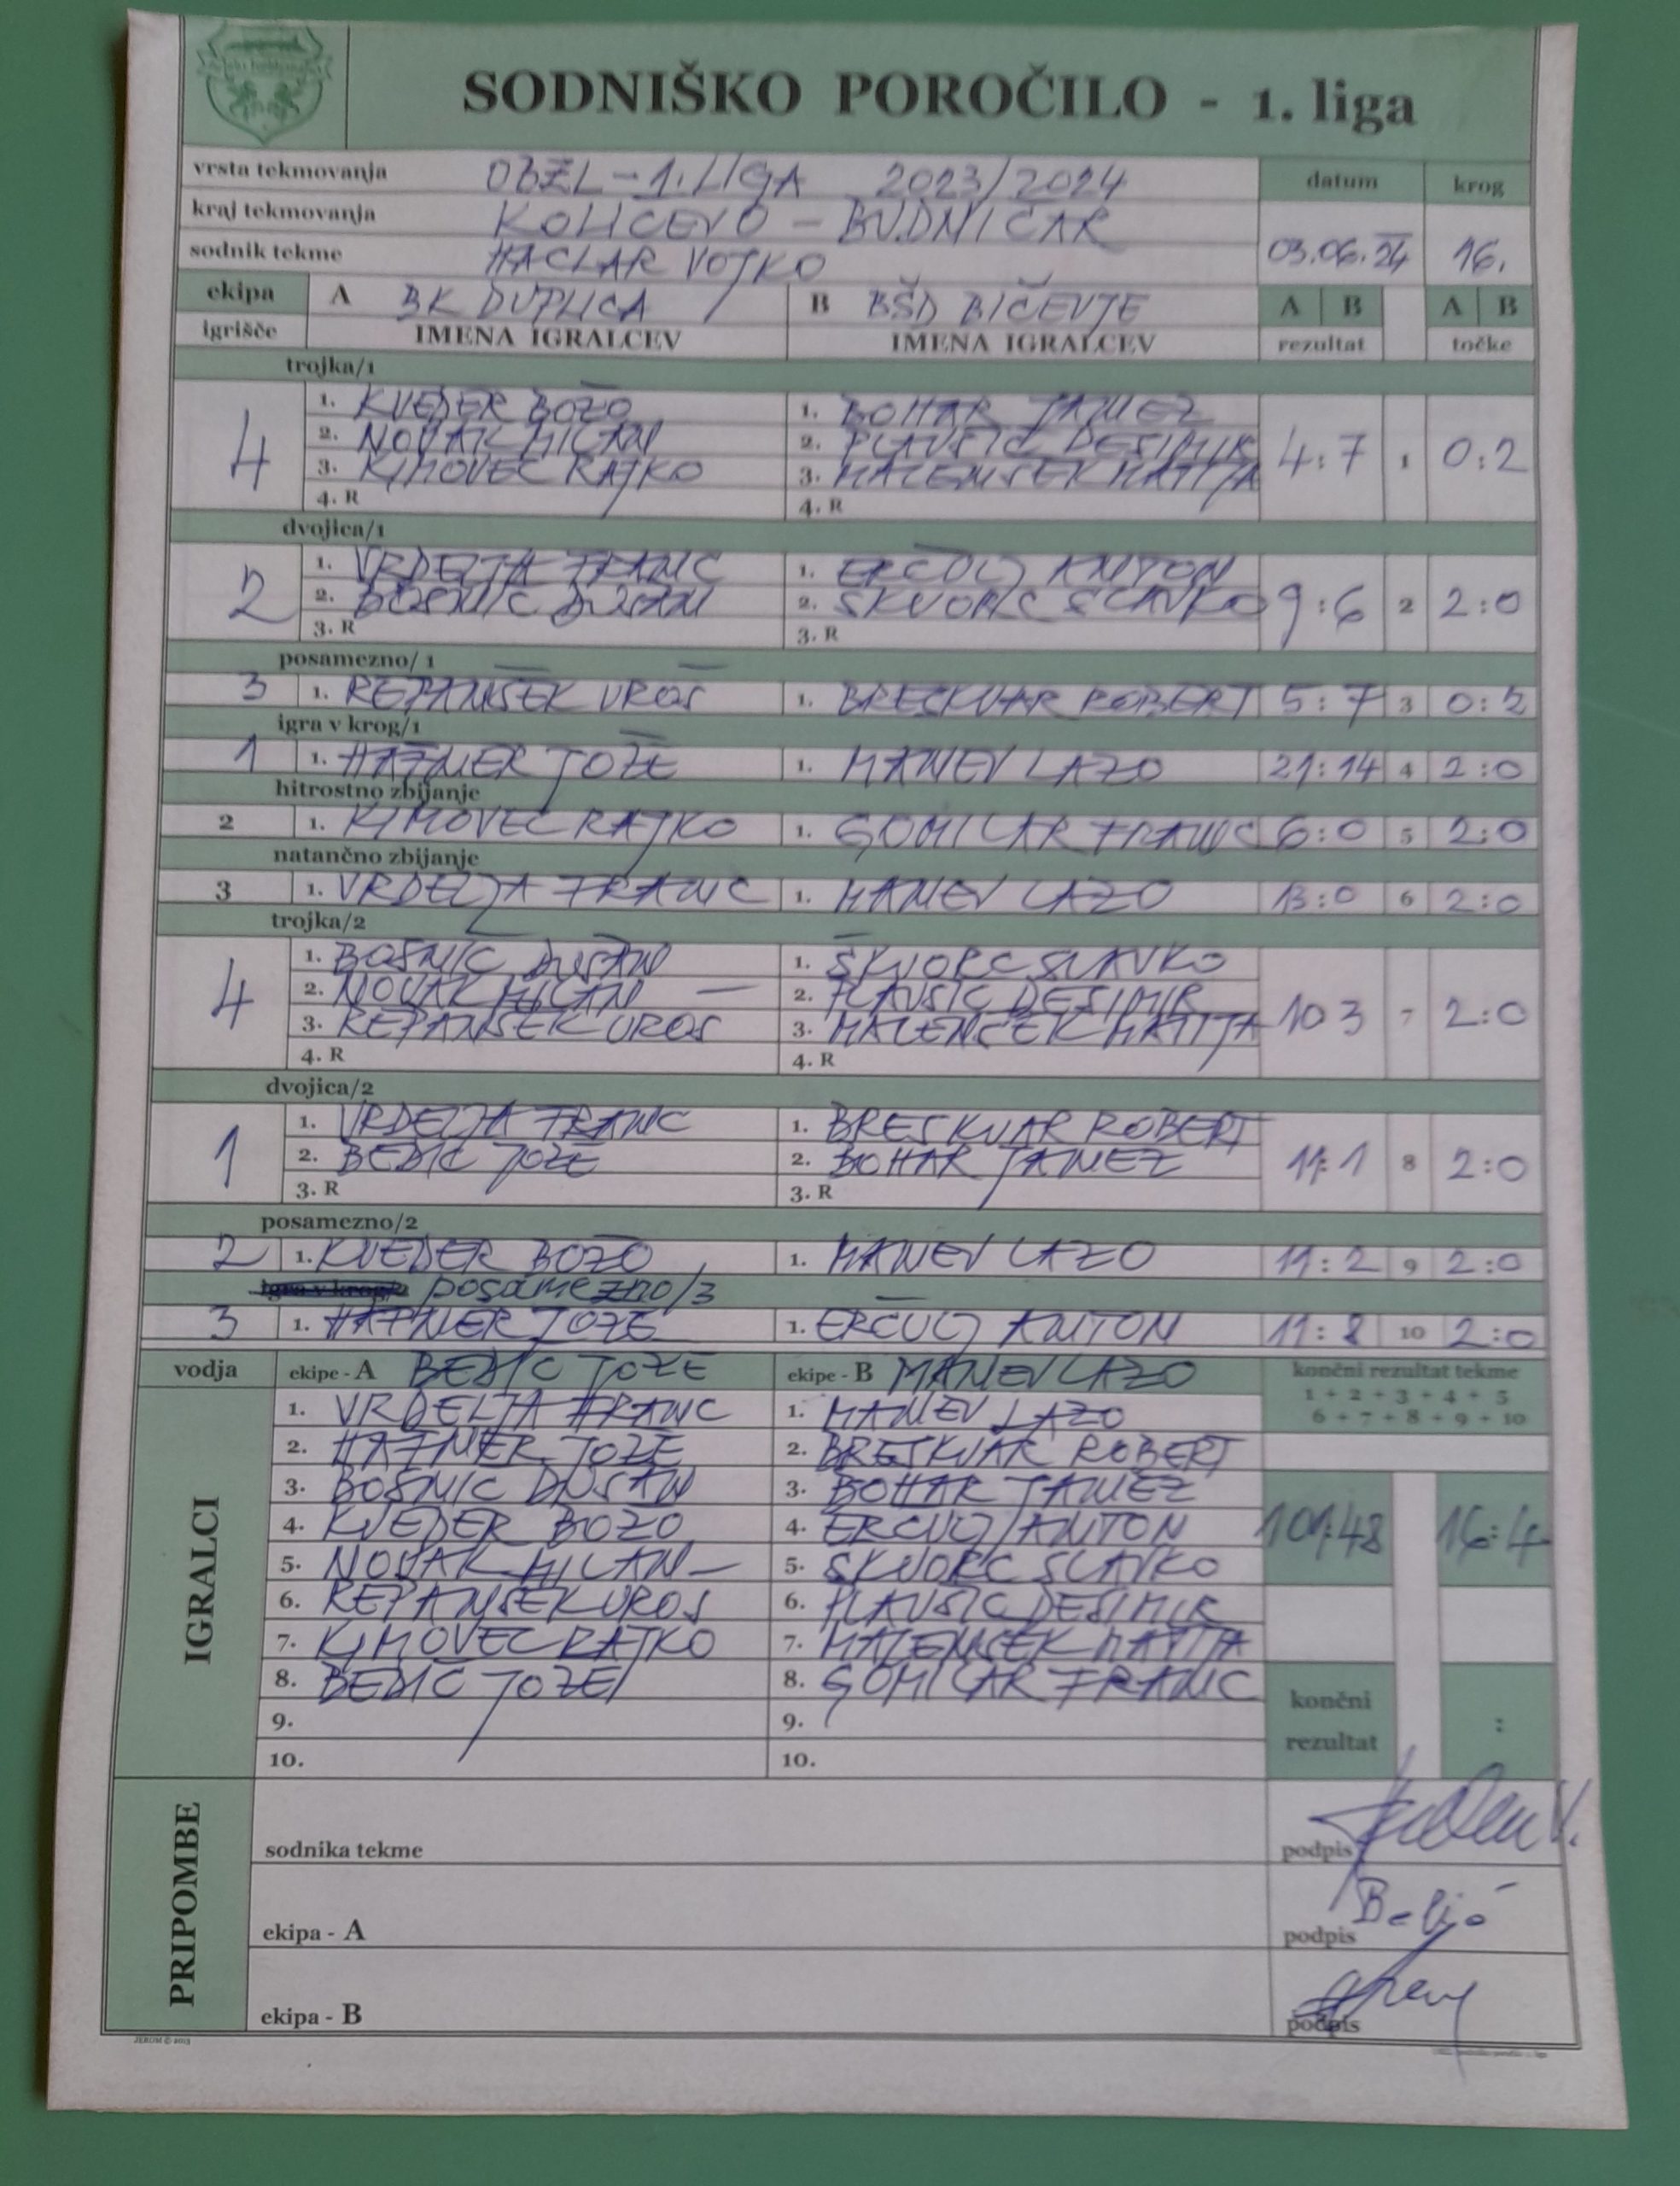 SODNIŠKO POROČILO - 1. liga
vrsta tekmovanja OBZL - 1. LIGA 2023/2024 datum krog
kraj tekmovanja KOLICEVO - BUDNIČAR
sodnik tekme HACLAR VOJKO 03.06.24 16.
ekipa A BK DUPLICA B BŠD BIČEVJE A B A B
igrišče IMENA IGRALCEV IMENA IGRALCEV rezultat točke
trojka/1
4 1. KVEDER BOŽO 1. BOHAR JANEZ 4:7 1 0:2
2. NOVAK MILAN 2. PLAVŠIC DESIMIR
3. KIMOVEC RAJKO 3. MALENŠEK MATIJA
4. R 4. R
dvojica/1
2 1. VRDELJA FRANC 1. ERČULJ ANTON 9:6 2 2:0
2. BOŠNIC DUŠAN 2. ŠKVORC SLAVKO
3. R 3. R
posamezno/1
3 1. REPANŠEK UROŠ 1. BRESKVAR ROBERT 5:7 3 0:2
igra v krog/1
1 1. HAFNER JOŽE 1. MANEV LAZO 21:14 4 2:0
hitrostno zbijanje
2 1. KIMOVEC RAJKO 1. GOMILAR FRANC 6:0 5 2:0
natančno zbijanje
3 1. VRDELJA FRANC 1. MANEV LAZO 13:0 6 2:0
trojka/2
4 1. BOŠNIC DUŠAN 1. ŠKVORC SLAVKO 10 3 7 2:0
2. NOVAK MILAN 2. PLAVŠIC DESIMIR
3. REPANŠEK UROŠ 3. MALENČEK MATIJA
4. R 4. R
dvojica/2
1 1. VRDELJA FRANC 1. BRESKVAR ROBERT 11:1 8 2:0
2. BEDIC JOŽE 2. BOHAR JANEZ
3. R 3. R
posamezno/2
2 1. KVEDER BOŽO 1. MANEV LAZO 11:2 9 2:0
igra v krog/2 posamezno/3
3 1. HAFNER JOŽE 1. ERČULJ ANTON 11:8 10 2:0
vodja ekipe - A BEDIC JOŽE ekipe - B MANEV LAZO končni rezultat tekme
1 + 2 + 3 + 4 + 5
6 + 7 + 8 + 9 + 10
IGRALCI
1. VRDELJA FRANC 1. MANEV LAZO
2. HAFNER JOŽE 2. BRESKVAR ROBERT
3. BOŠNIC DUŠAN 3. BOHAR JANEZ
4. KVEDER BOŽO 4. ERCULJ ANTON 101:48 16:4
5. NOVAK MILAN 5. ŠKVORC SLAVKO
6. REPANŠEK UROŠ 6. PLAVŠIC DESIMIR
7. KIMOVEC RAJKO 7. MALENŠEK MATIJA
8. BEDIC JOŽE 8. GOMILAR FRANC
9. 9. končni rezultat :
10. 10.
PRIPOMBE
sodnika tekme podpis
ekipa - A podpis
ekipa - B podpis
JEROM © 2013